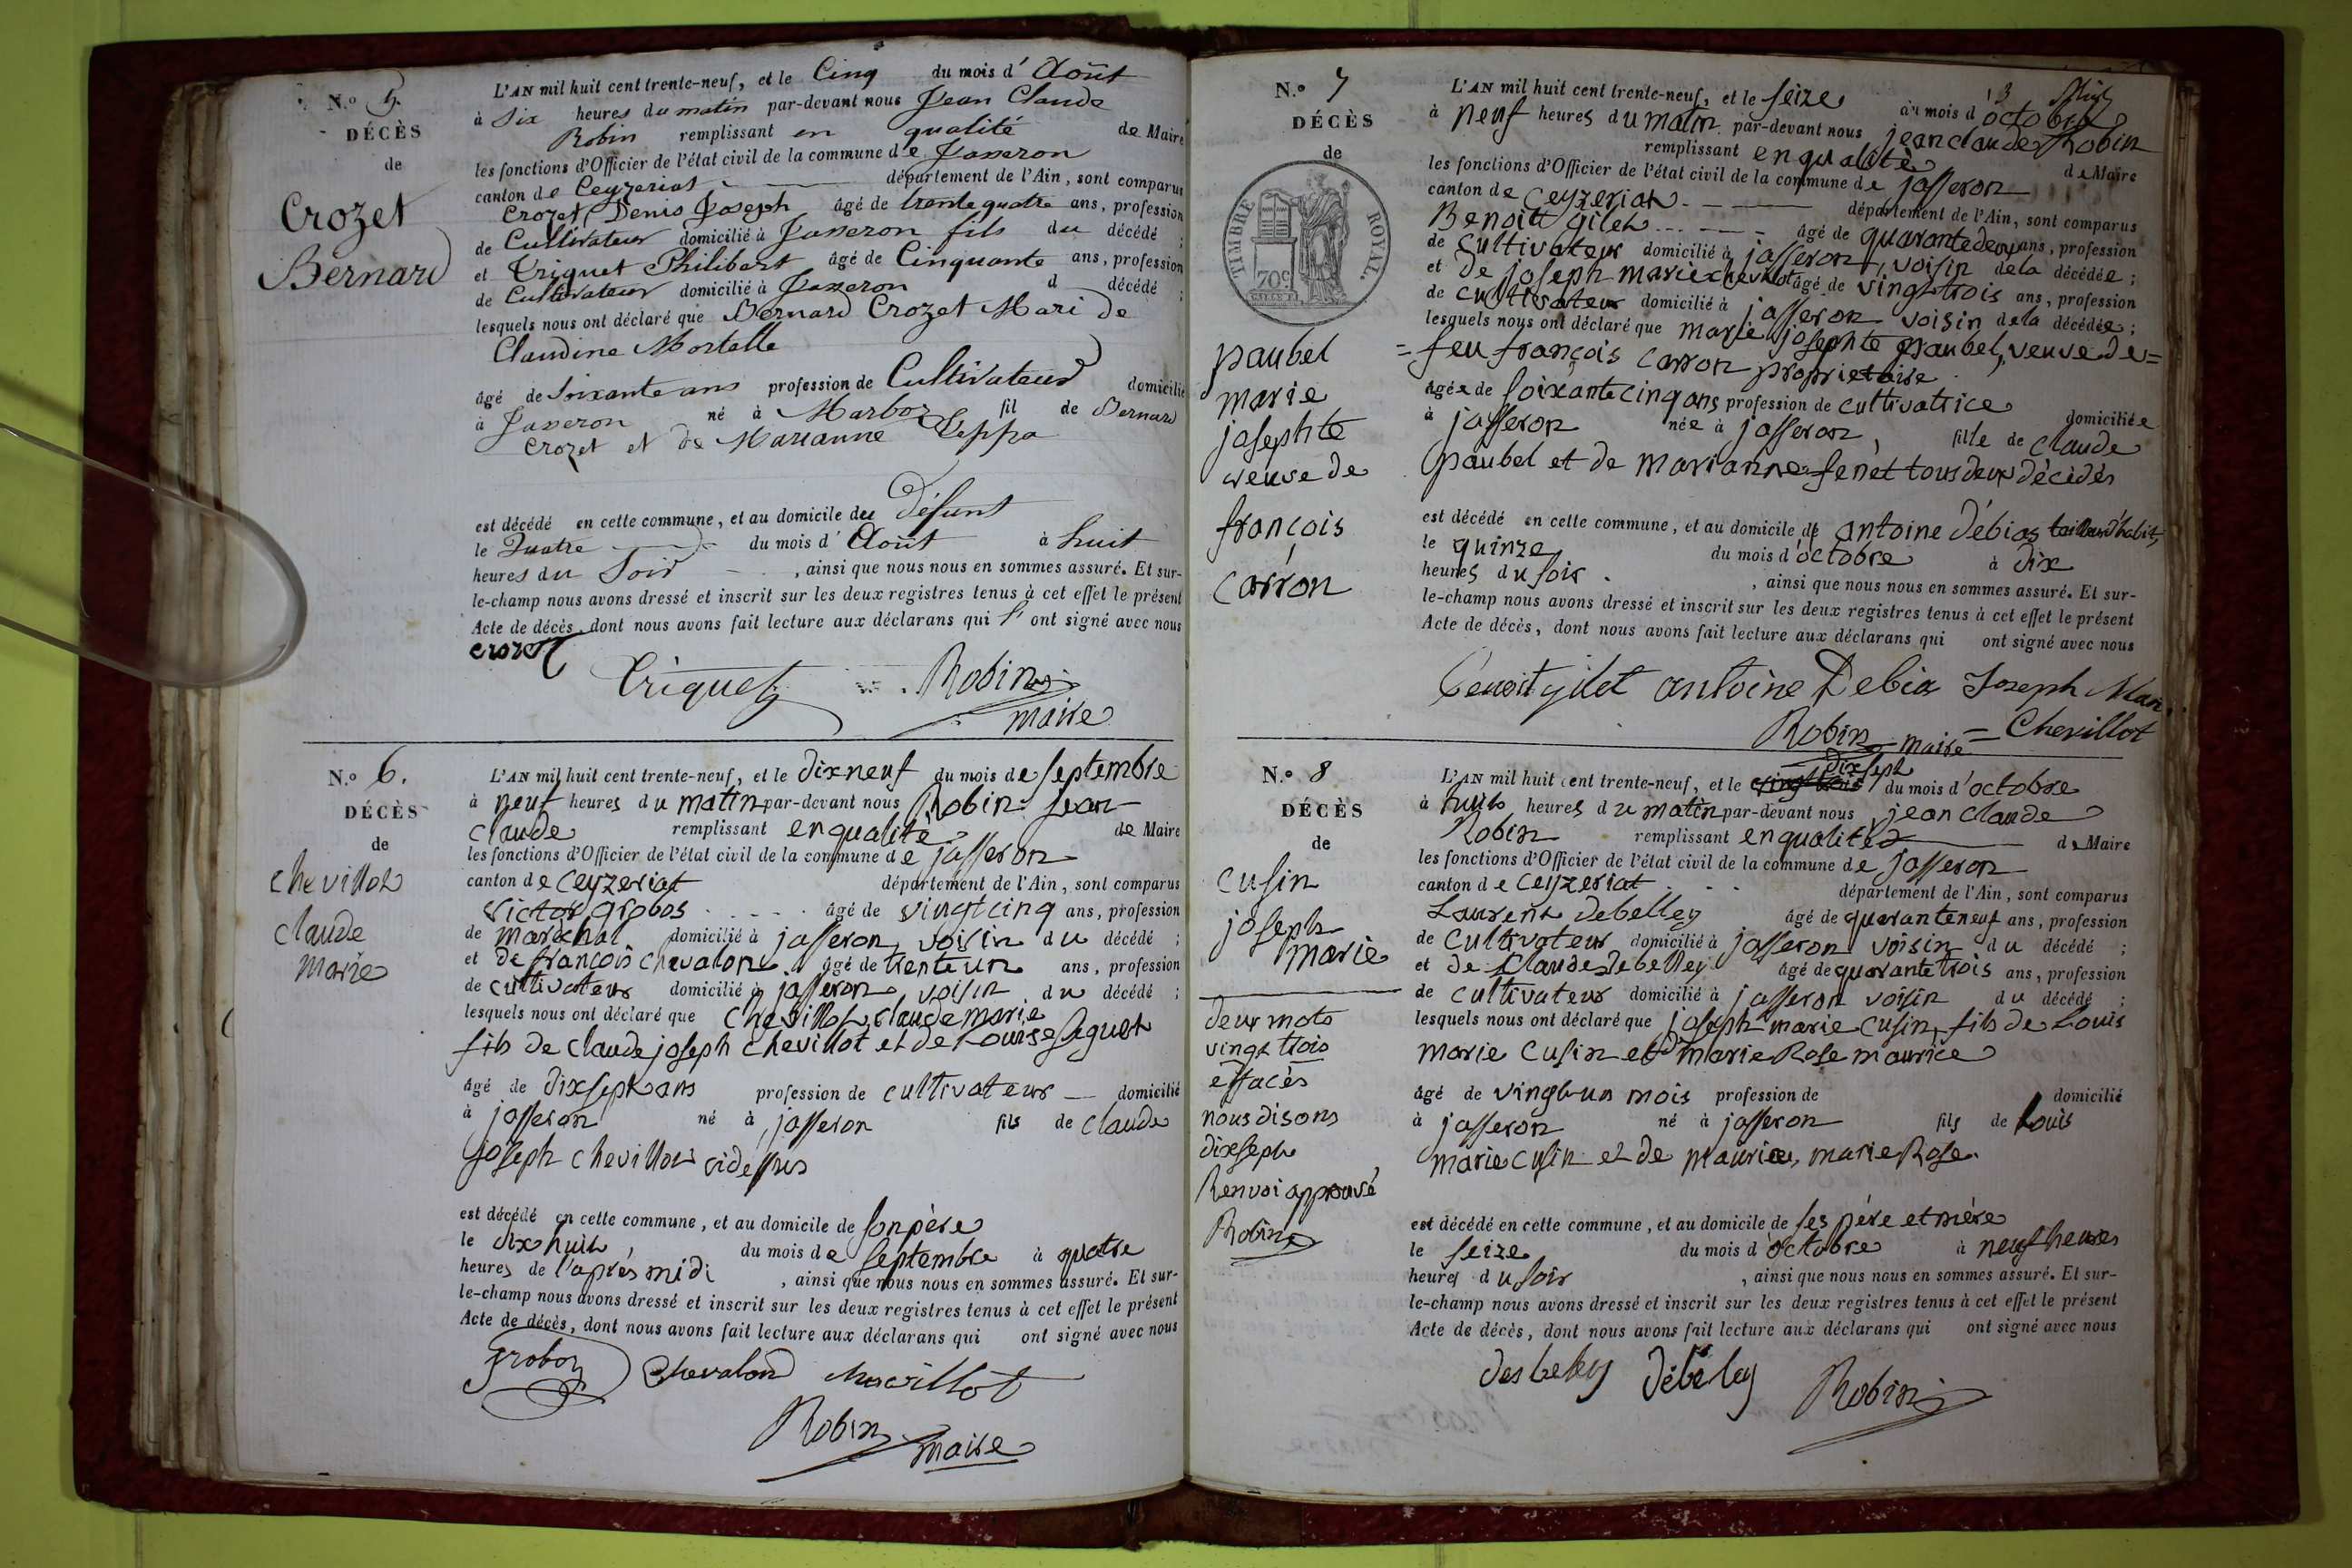 N.º 5.
DÉCÈS
de
Crozet
Bernard
L'AN mil huit cent trente-neuf, et le Cinq du mois d' Août
à Six heures du matin par-devant nous Jean Claude
Robin remplissant en qualité de Maire
les fonctions d'Officier de l'état civil de la commune de Jasseron
canton de Ceyzeriat département de l'Ain, sont comparus
Crozet Denis Joseph âgé de trente quatre ans, profession
de Cultivateur domicilié à Jasseron fils du décédé ;
et Triquet Philibert âgé de Cinquante ans, profession
de Cultivateur domicilié à Jasseron d décédé ;
lesquels nous ont déclaré que Bernard Crozet Mari de
Claudine Mortelle
âgé de Soixante ans profession de Cultivateur domicilié
à Jasseron né à Marboz fil de Bernard
Crozet et de Marianne
est décédé en cette commune, et au domicile du Défunt
le Quatre du mois d' Août à huit
heures du Soir , ainsi que nous nous en sommes assuré. Et sur-
le-champ nous avons dressé et inscrit sur les deux registres tenus à cet effet le présent
Acte de décès, dont nous avons fait lecture aux déclarans qui l' ont signé avec nous
crozet
Triquet Robin
maire
N.º 6.
DÉCÈS
de
chevillot
claude
marie
L'AN mil huit cent trente-neuf, et le dixneuf du mois de septembre
à neuf heures du matin par-devant nous Robin jean
claude remplissant enqualité de Maire
les fonctions d'Officier de l'état civil de la commune de jasseron
canton de ceyzeriat département de l'Ain, sont comparus
victor grobos âgé de vingtcinq ans, profession
de marechal domicilié à jasseron, voisin du décédé ;
et de françois chevalon âgé de trenteun ans, profession
de cultivateur domicilié à jasseron voisin du décédé ;
lesquels nous ont déclaré que chevillot, claude marie
fils de claude joseph chevillot et de Louise
âgé de dixsept ans profession de cultivateur domicilié
à jasseron né à jasseron fils de claude
joseph chevillot cidessus
est décédé en cette commune, et au domicile de son père
le dix huit, du mois de septembre à quatre
heures de l'après midi , ainsi que nous nous en sommes assuré. Et sur-
le-champ nous avons dressé et inscrit sur les deux registres tenus à cet effet le présent
Acte de décès, dont nous avons fait lecture aux déclarans qui ont signé avec nous
Grobos Chevalon chevillot
Robin
maire
N.º 7
DÉCÈS
de
TIMBRE ROYAL.
70c
paubel
marie
josephte
veuve de
françois
carron
L'AN mil huit cent trente-neuf, et le seize du mois d'octobre
à neuf heures du matin par-devant nous jean claude Robin
remplissant en qualité de Maire
les fonctions d'Officier de l'état civil de la commune de jasseron
canton de ceyzeriat département de l'Ain, sont comparus
Benoit gilet âgé de quarantedeux ans, profession
de cultivateur domicilié à jasseron, voisin dela décédée ;
et de joseph marie chevillot âgé de vingt trois ans, profession
de cultivateur domicilié à jasseron voisin dela décédée ;
lesquels nous ont déclaré que marie josephte paubel, veuve de=
=feu françois carron proprietaire
âgée de soixantecinq ans profession de cultivatrice domiciliée
à jasseron née à jasseron, fille de claude
paubel et de marianne fenet tous deux décédés
est décédé en cette commune, et au domicile de antoine Débias tailleur d'habits
le quinze du mois d'octobre à dix
heures du soir. , ainsi que nous nous en sommes assuré. Et sur-
le-champ nous avons dressé et inscrit sur les deux registres tenus à cet effet le présent
Acte de décès, dont nous avons fait lecture aux déclarans qui ont signé avec nous
Benoit gilet antoine Debia Joseph Mari
Robin maire = Chevillot
N.º 8
DÉCÈS
de
cusin
joseph
marie
deux mots
vingt trois
effacés
nous disons
dixsept
Renvoi approuvé
Robin
dixsept
L'AN mil huit cent trente-neuf, et le vingt trois du mois d'octobre
à huit heures du matin par-devant nous jean claude
Robin remplissant enqualité de Maire
les fonctions d'Officier de l'état civil de la commune de jasseron
canton de ceyzeriat département de l'Ain, sont comparus
Laurent debelley âgé de quaranteneuf ans, profession
de cultivateur domicilié à jasseron voisin du décédé ;
et de claude debelley âgé de quarantetrois ans, profession
de cultivateur domicilié à jasseron voisin du décédé ;
lesquels nous ont déclaré que joseph marie cusin, fils de Louis
marie cusin et d'marie Rose maurice
âgé de vingt un mois profession de domicilié
à jasseron né à jasseron fils de Louis
marie cusin et de maurice, marie Rose.
est décédé en cette commune, et au domicile de ses père et mère
le seize du mois d'octobre à neuf heures
heures du soir , ainsi que nous nous en sommes assuré. Et sur-
le-champ nous avons dressé et inscrit sur les deux registres tenus à cet effet le présent
Acte de décès, dont nous avons fait lecture aux déclarans qui ont signé avec nous
desbeley débéley Robin